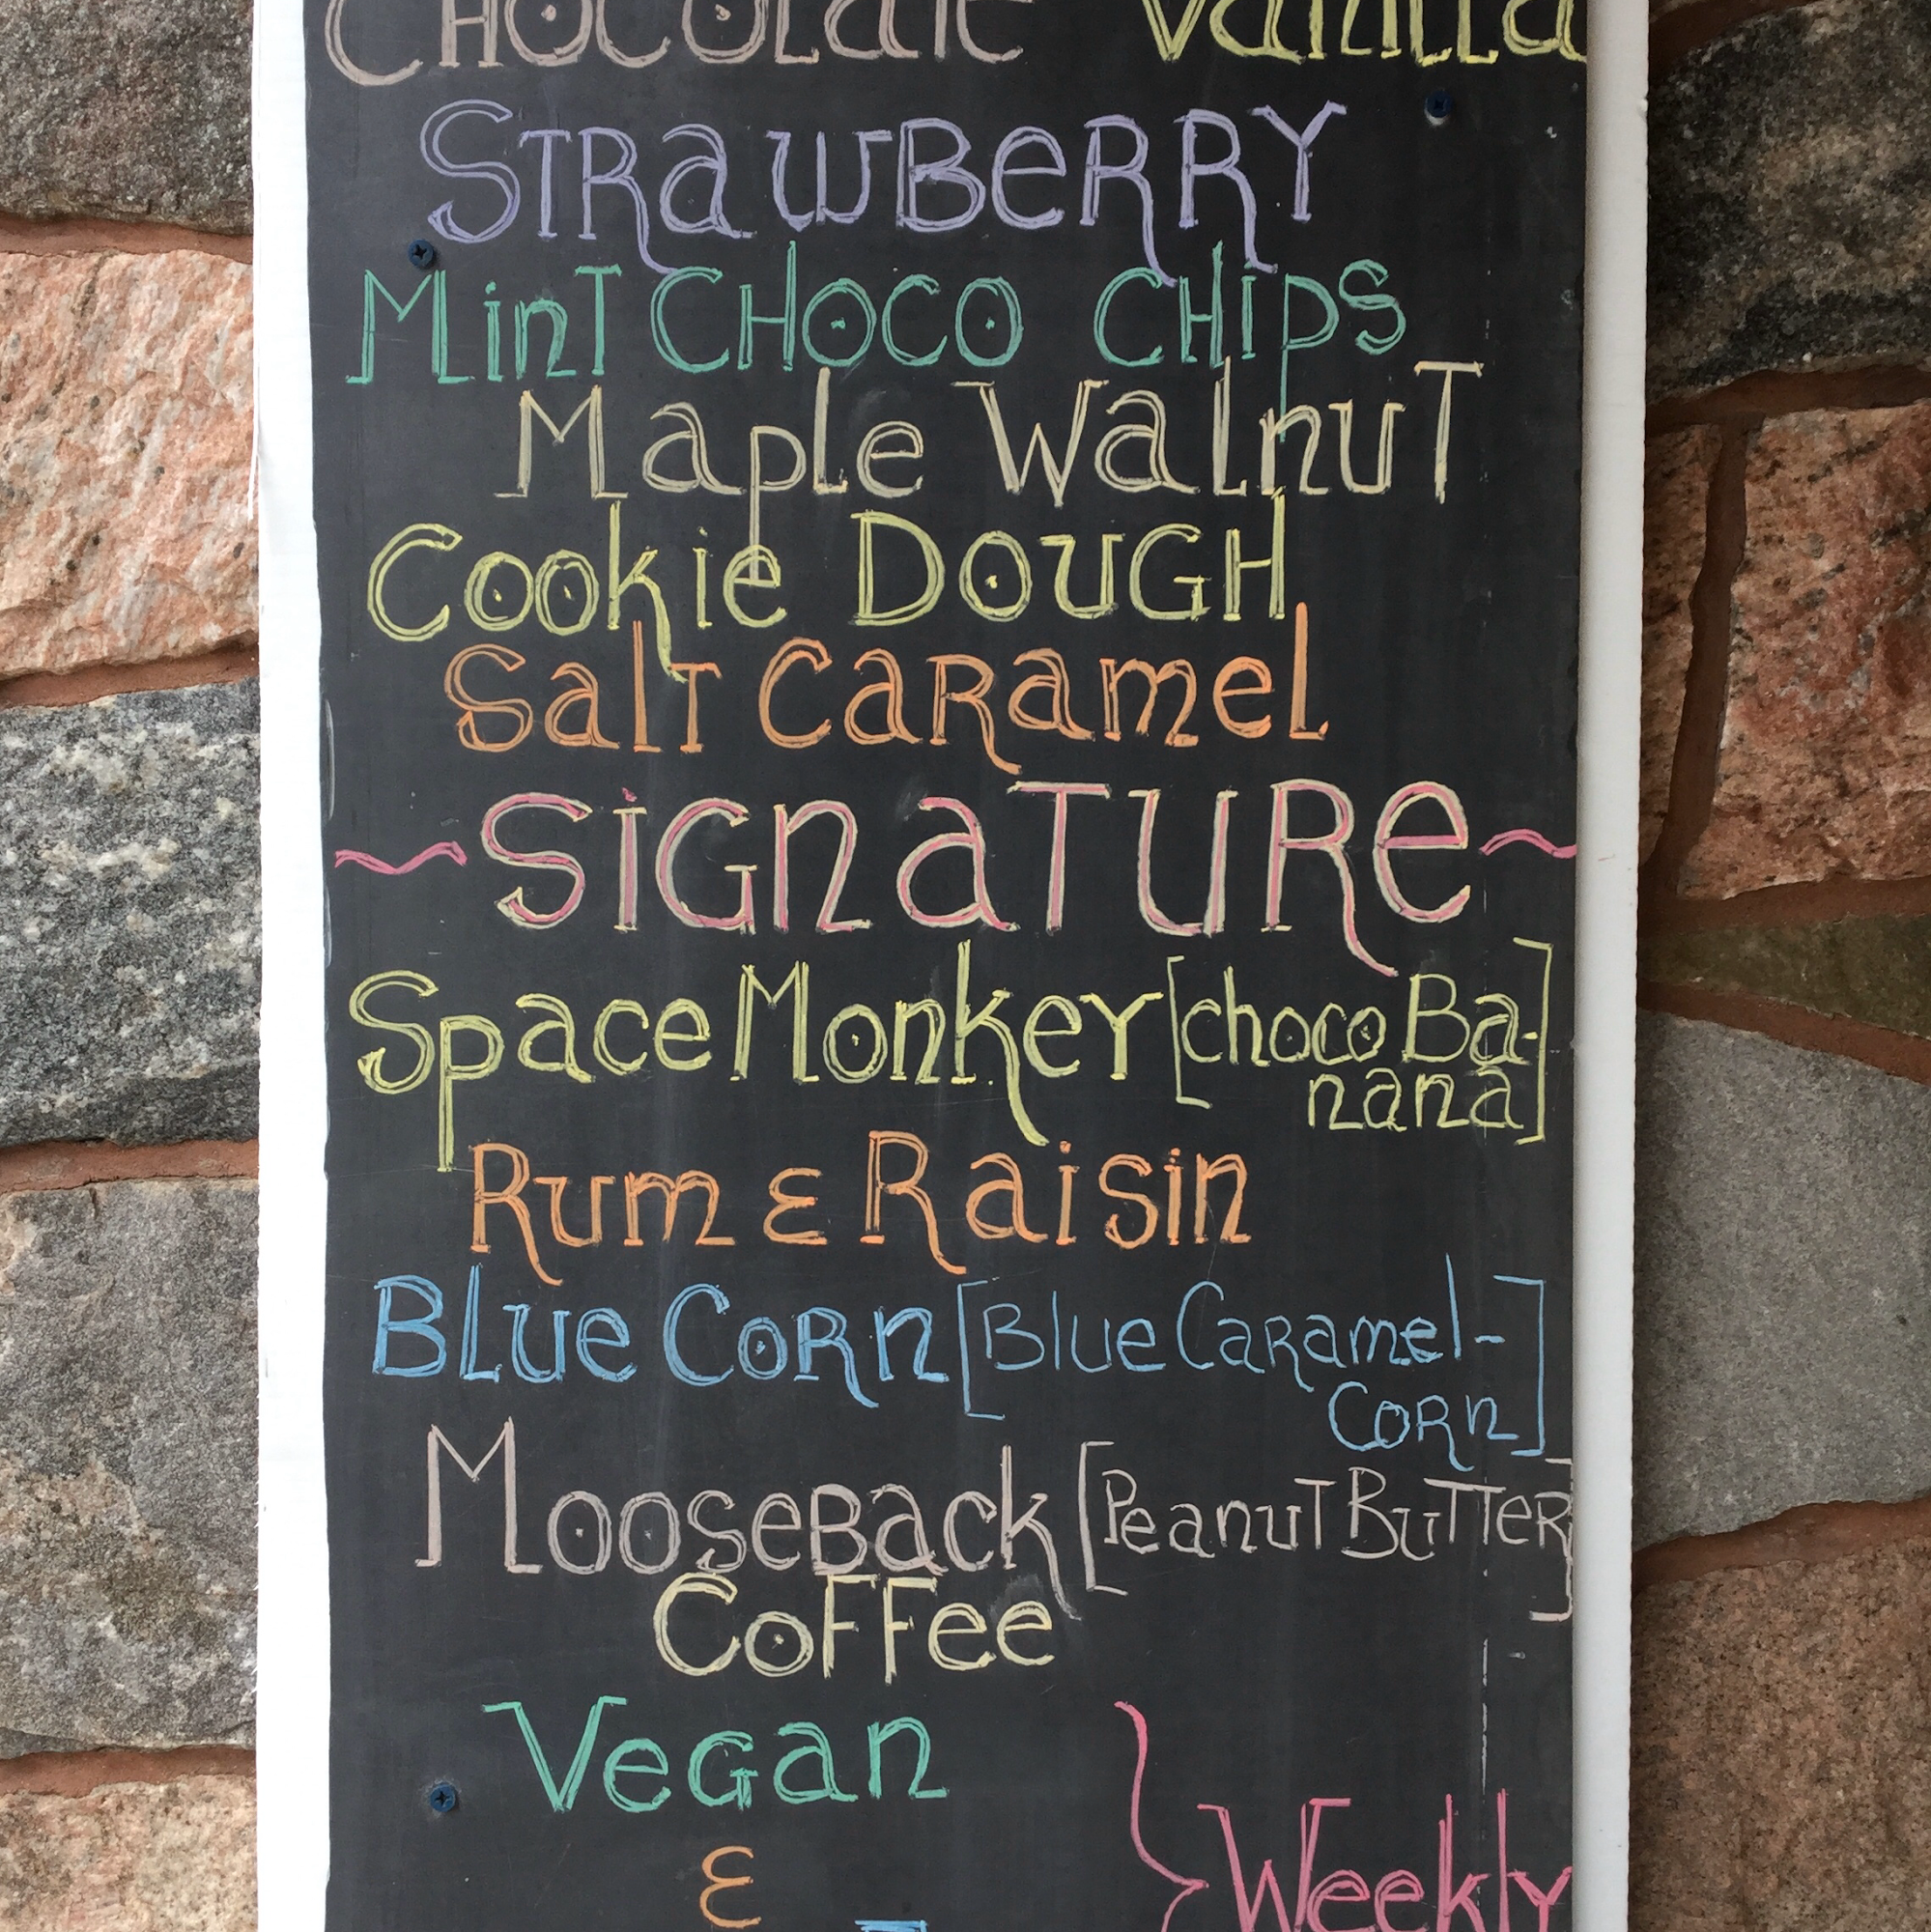 CHOCOLATE Vanilla
STRAWBERRY
MinT CHOCO CHIPS
Maple WalnuT
Cookie DOUGH
SalT CaRamel
~SIGnaTURe~
Space Monkey [choco Ba-
nana]
Rum & Raisin
BLue CoRn [Blue CaRamel-
CoRn]
MooseBack [PeanuT BuTTeR]
CoFFee
VeGan
&
Weekly